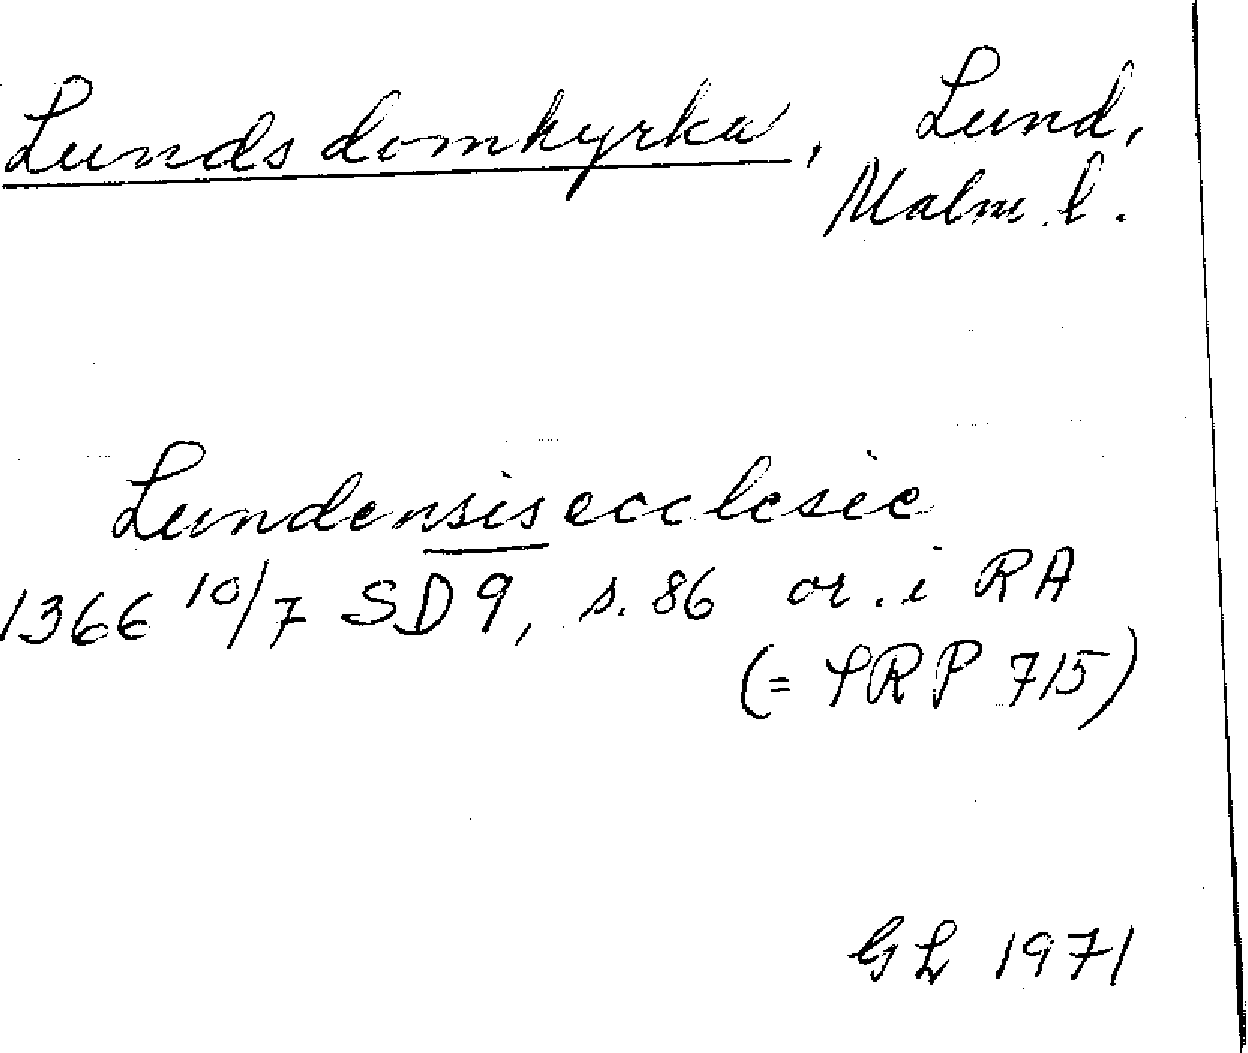 Lunds domkyrka, Lund,
Malm. l.
Lundensis ecclesie
1366 10/7 SD 9, s. 86 or. i RA
(= SRP 715)
GL 1971